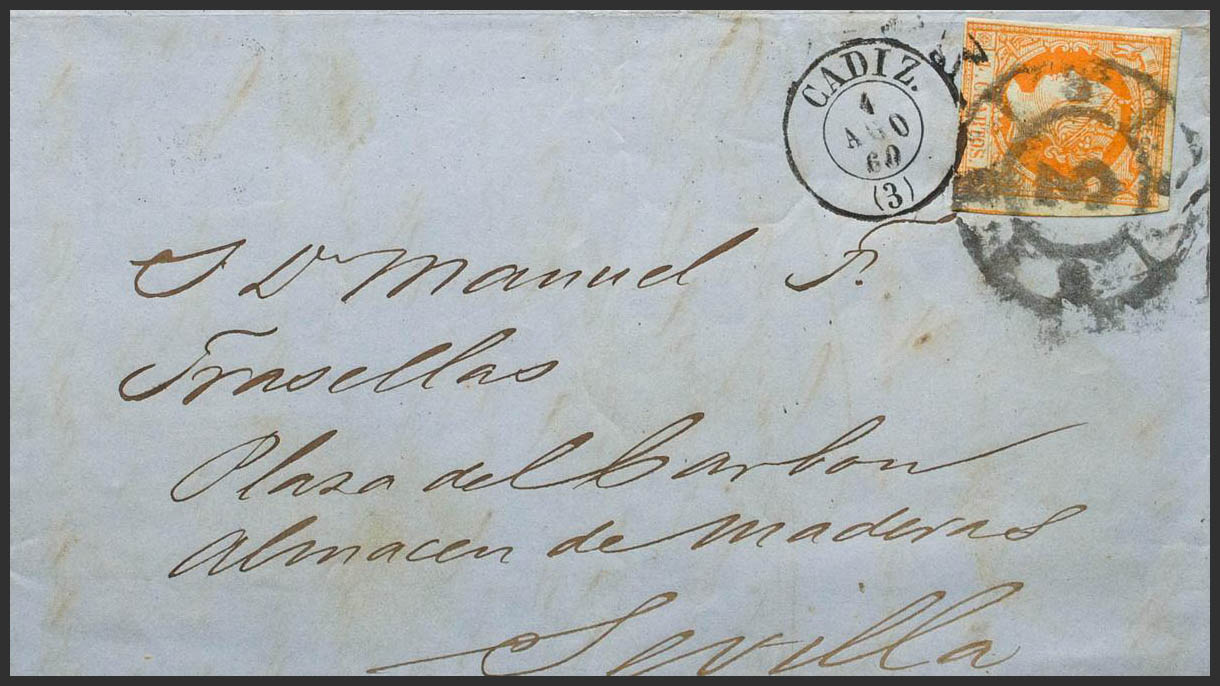 CADIZ.
4
AGO
60
(3)
CUARTOS
S Dn Manuel F.
Frasellas
Plaza del Carbon
Almacen de maderas
Sevilla